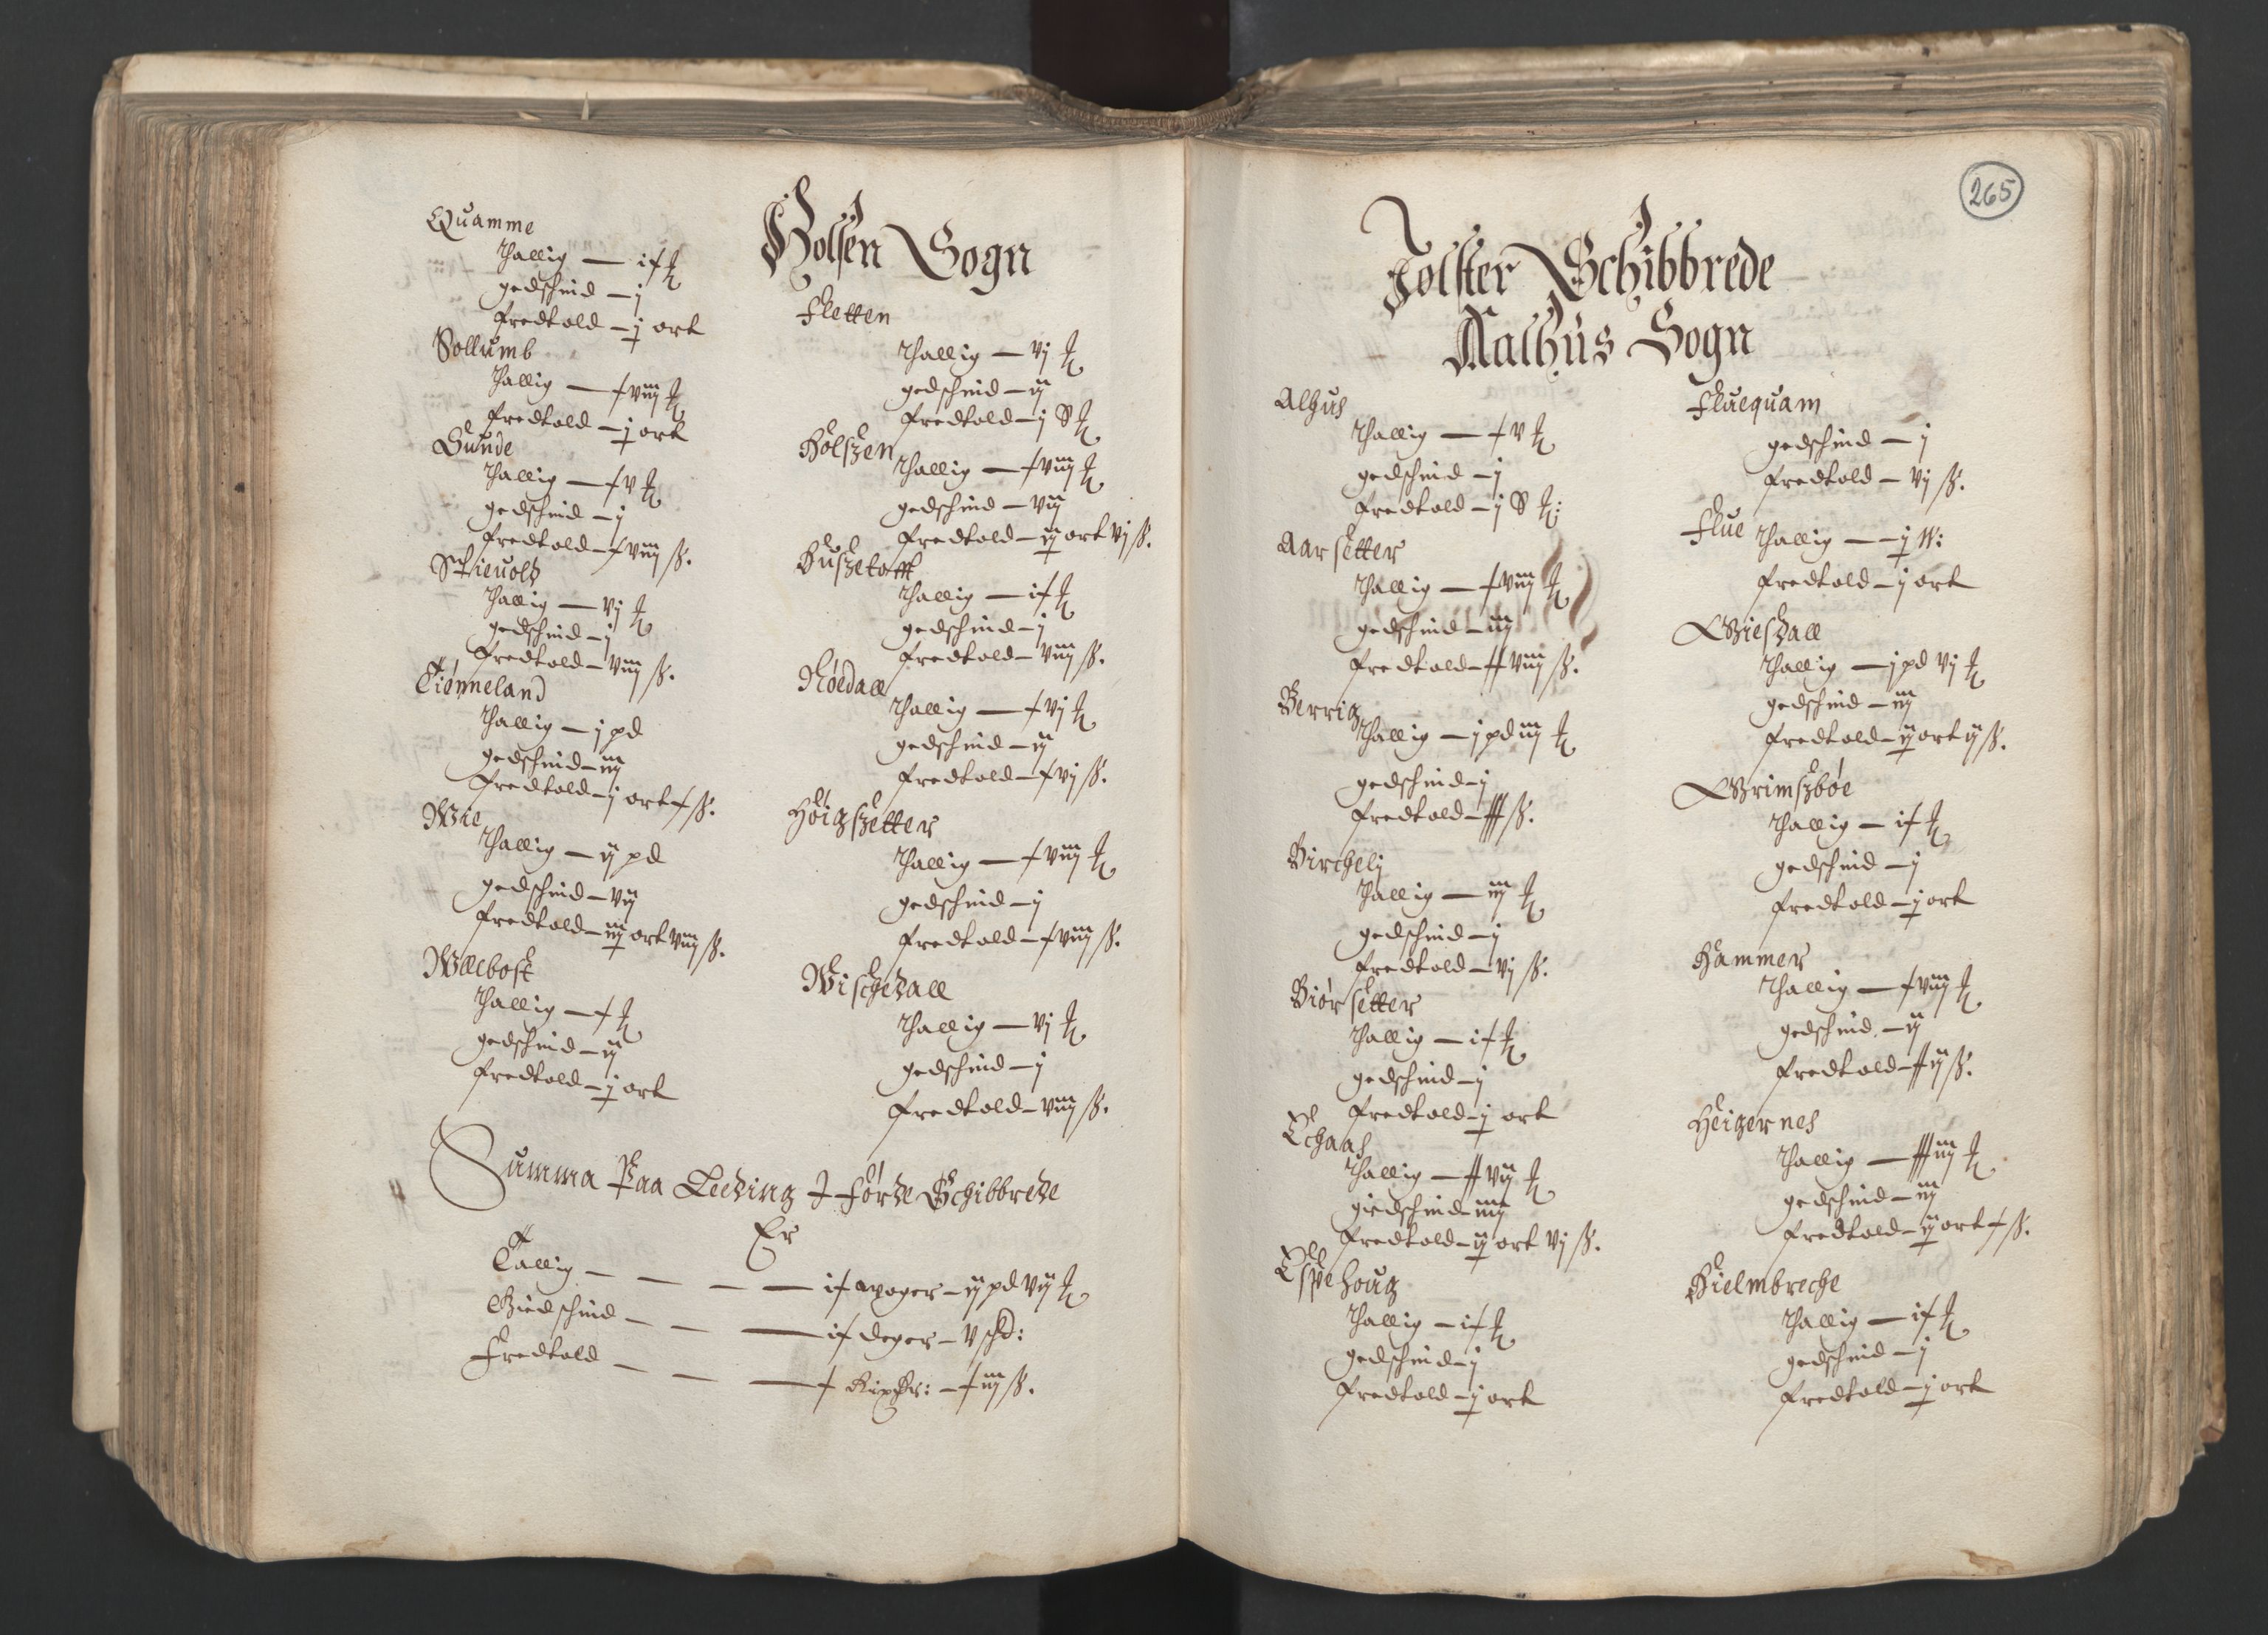 Quamme
Thallig — if ℔
gedschind — j
fredtold — j ort
Sollumb
Thallig — f viij ℔
fredtold — j ort
Sunde
Thallig — f v ℔
gedschind — j
fredtold — f viij ß.
Schieuold
Thallig — vj ℔
gedschind — j
fredtold — viij ß.
Tiønneland
Thallig — j pd
gedschind — iij
fredtold — j ort f ß.
Wie
Thallig — ij pd
gedschind — vij
fredtold — iij ort viij ß.
Wælbost
Thallig — f ℔
gedschind — ij
fredtold — j ort
Holsen Sogn
Fletten
Thallig — vj ℔
gedschind — ij
fredtold — j S ℔
Holszen
Thallig — f viij ℔
gedschind — vij
fredtold — ij ort vj ß.
Huszetofft
Thallig — if ℔
gedschind — j
fredtold — viij ß.
Nøedall
Thallig — f vj ℔
gedschind — ij
fredtold — f vj ß.
Høigszetter
Thallig — f viij ℔
gedschind — j
fredtold — f viij ß.
Wischedall
Thallig — vj ℔
gedschind — j
fredtold — viij ß.
Summa Paa Leeding I Førde Schibbrede
Er
Tallig — — — — if woger — ij pd vij ℔
Giedschind — — — if deger — v schd:
Fredtold — — — f Rixdr: — f iij ß.
265
Jølster Schibbrede
Aalhus Sogn
Alhus
Thallig — f v ℔
gedschind — j
fredtold — j S ℔:
Aarsetter
Thallig — f viij ℔
gedschind — iij
fredtold — ff viij ß.
Berrig
Thallig — j pd iij ℔
gedschind — j
fredtold — fff ß.
Birchelj
Thallig — iij ℔
gedschind — j
fredtold — vj ß.
Biørsetter
Thallig — if ℔
gedschind — j
fredtold — j ort
Echaas
Thallig — ff vij ℔
giedschind — iiij
fredtold — ij ort vj ß.
Espehoug
Thallig — if ℔
gedschind — j
fredtold — j ort
Fluequam
gedschind — j
fredtold — vj ß.
Flue
Thallig — — j W:
fredtold — j ort
Gieszall
Thallig — j pd vj ℔
gedschind — iij
fredtold — ij ort ij ß.
Grimszbøe
Thallig — if ℔
gedschind — j
fredtold — j ort
Hammer
Thallig — f viij ℔
gedschind — ij
fredtold — ff ij ß.
Heigernes
Thallig — fff iij ℔
gedschind — iij
fredtold — ij ort f ß.
Hielmbreche
Thallig — if ℔
gedschind — j
fredtold — j ort